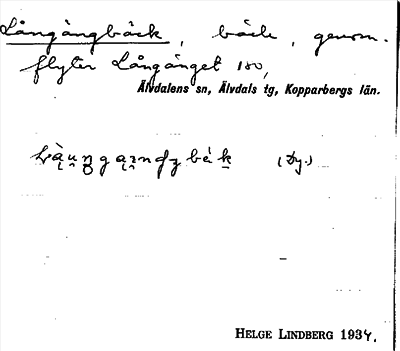 Långängbäck, bäck, genom-
flyter Långänget 150,
Älvdalens sn, Älvdals tg, Kopparbergs län.
(Dy.)
HELGE LINDBERG 1934.